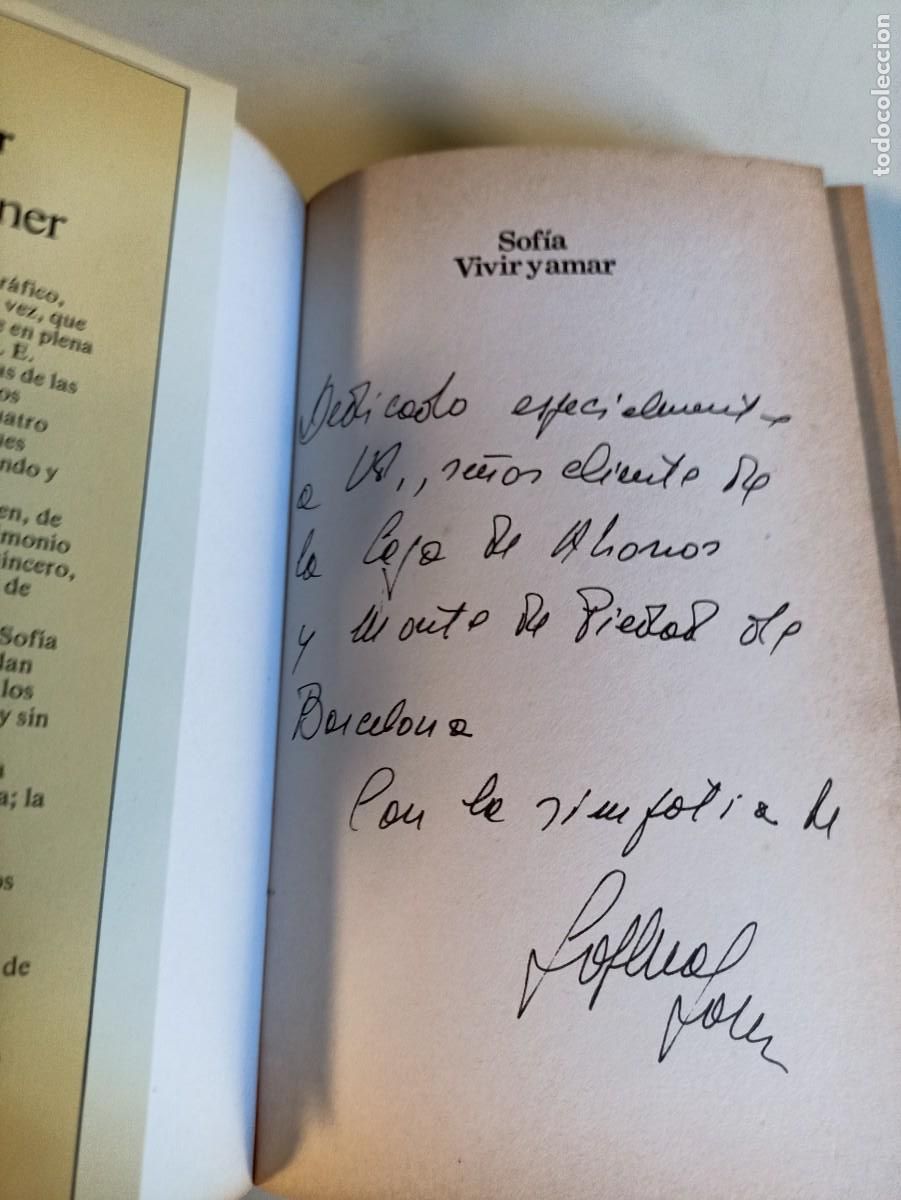 r
ner
ráfico,
vez, que
e en plena
. E.
as de las
os
uatro
es
ndo y
en, de
imonio
sincero,
de
Sofía
lan
los
y sin
a
a; la
os
de
Sofía
Vivir y amar
Dedicado especialmente
a Vd., señor cliente de
la Caja de Ahorros
y Monte de Piedad de
Barcelona
Con la simpatía de
Sophia
Loren
todocoleccion